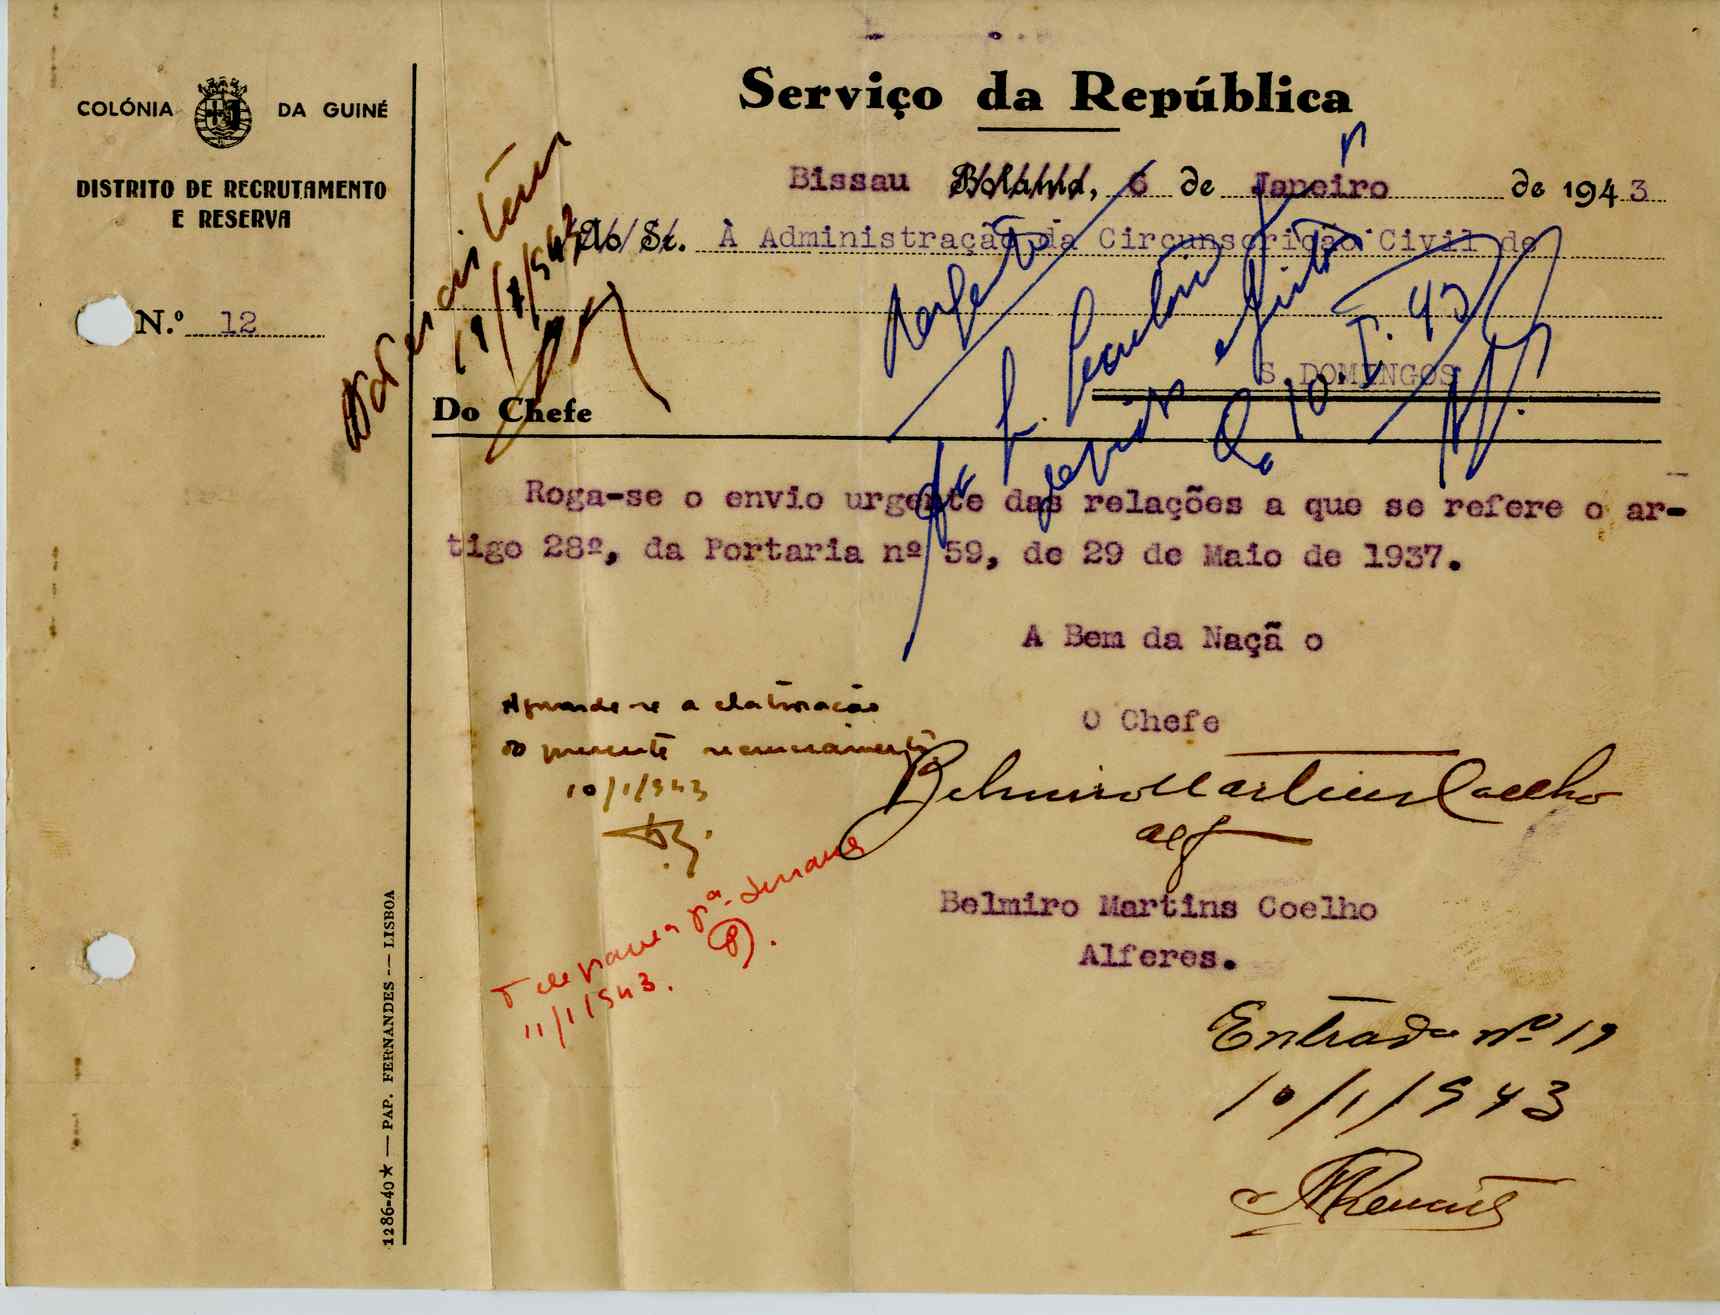 COLÓNIA DA GUINÉ
DISTRITO DE RECRUTAMENTO
E RESERVA
N.º 12
Serviço da República
Bissau Bolama, 6 de Janeiro de 1943
Ao Sr. À Administração da Circunscrição Civil de
S. DOMINGOS
Do Chefe
19/1/943
10.I.43
Roga-se o envio urgente das relações a que se refere o ar-
tigo 28º, da Portaria nº 59, de 29 de Maio de 1937.
A Bem da Naçã o
O Chefe
Aguarde-se a elaboração
do presente recenseamento
10/1/943
Belmiro Martins Coelho
alf
Belmiro Martins Coelho
Alferes.
11/1/943.
Entrada nº 19
10/1/943
1286-40★ — PAP. FERNANDES — LISBOA